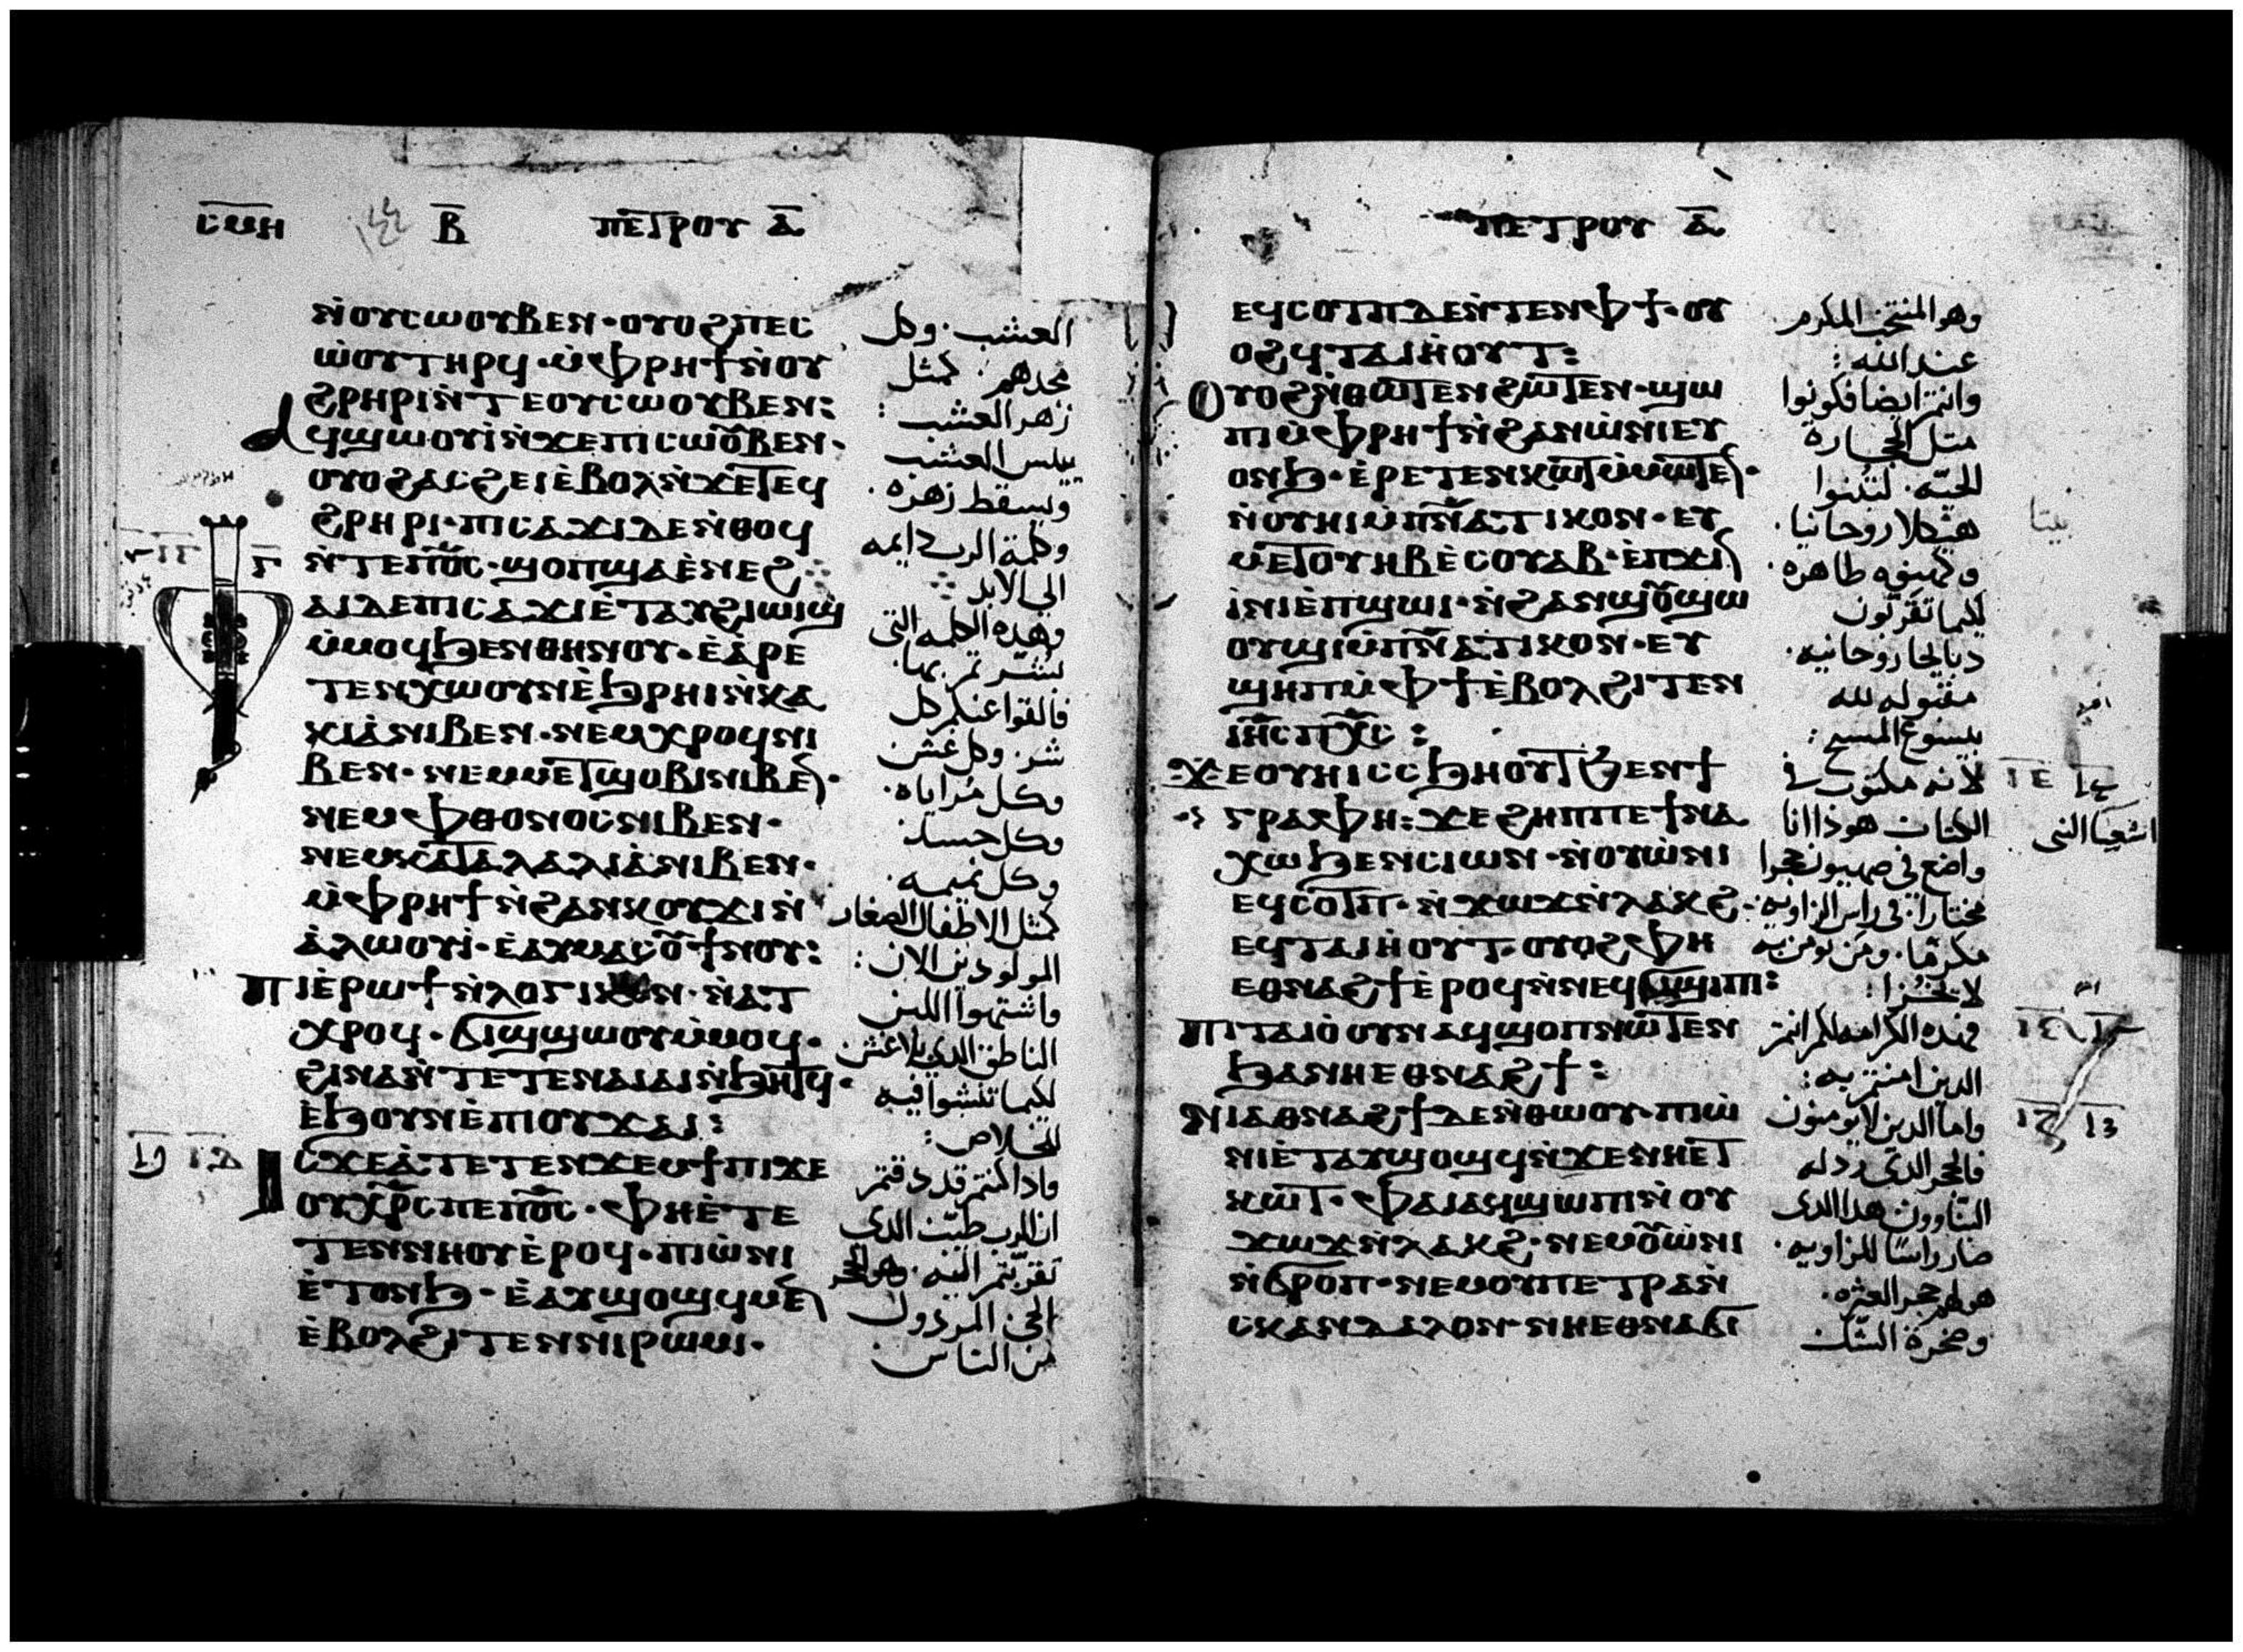 ⲤⲘⲎ Ⲃ ⲠⲈⲦⲢⲞⲨ Ⲁ
ⲚⲞⲨⲤⲰⲞⲨⲂⲈⲚ· ⲞⲨⲞϨ ⲠⲈⲤ
ⲰⲞⲨ ⲦⲎⲢϤ· ⲘⲪⲢⲎϮ ⲚⲞⲨ
ϨⲢⲎⲢⲒ ⲚⲦⲈ ⲞⲨⲤⲰⲞⲨⲂⲈⲚ:
ⲀϤϢⲰⲞⲨⲒ ⲚϪⲈ ⲠⲒⲤⲰⲞ̅ⲂⲈⲚ·
ⲞⲨⲞϨ ⲀⲤϨⲈⲒ ⲈⲂⲞⲖ ⲚϪⲈ ⲦⲈϤ
ϨⲢⲎⲢⲒ· ⲠⲒⲤⲀϪⲒ ⲆⲈ ⲚⲐⲞϤ
ⲚⲦⲈ ⲠⲞ̅Ⲥ· ϢⲞⲠ ϢⲀ ⲈⲚⲈϨ
ⲪⲀⲒ ⲆⲈ ⲠⲒⲤⲀϪⲒ ⲈⲦⲀⲨϨⲒⲰⲒϢ
ⲘⲘⲞϤ ϦⲈⲚ ⲐⲎⲚⲞⲨ· ⲈⲀⲢⲈ
ⲦⲈⲚⲬⲰ ⲞⲨⲚ ⲈϦⲢⲎⲒ ⲚⲔⲀ
ⲔⲒⲀ ⲚⲒⲂⲈⲚ· ⲚⲈⲘ ⲬⲢⲞϤ ⲚⲒ
ⲂⲈⲚ· ⲚⲈⲘ ⲘⲈⲦϢⲞⲂⲒ ⲚⲒⲂⲈ̅·
ⲚⲈⲘ ⲪⲐⲞⲚⲞⲤ ⲚⲒⲂⲈⲚ·
ⲚⲈⲘ ⲔⲀⲦⲀⲖⲀⲖⲒⲀ ⲚⲒⲂⲈⲚ·
ⲘⲪⲢⲎϮ ⲚϨⲀⲚⲔⲞⲨϪⲒ Ⲛ
ⲀⲖⲰⲞⲨⲒ· ⲈⲀⲨⲘⲀⲤⲞ̅ ϮⲚⲞⲨ:
ⲠⲒⲈⲢⲰϮ ⲚⲖⲞⲄⲒⲔⲞⲚ· ⲚⲀⲦ
ⲬⲢⲞϤ· ϬⲒϢϢⲰⲞⲨ ⲘⲘⲞϤ·
ϨⲒⲚⲀ ⲚⲦⲈⲦⲈⲚⲀⲒⲀⲒ ⲚϦⲎⲦϤ·
ⲈϦⲞⲨⲚ ⲈⲠⲒⲞⲨϪⲀⲒ:
ⲒⲤϪⲈ ⲀⲦⲈⲦⲈⲚϪⲈⲘϮⲠⲒ ϪⲈ
ⲞⲨⲬⲢ̅Ⲥ ⲠⲈ ⲠⲞ̅Ⲥ· ⲪⲎ ⲈⲦⲈ
ⲦⲈⲚⲚⲎⲞⲨ ⲈⲢⲞϤ· ⲠⲒⲰⲚⲒ
ⲈⲦⲞⲚϦ· ⲈⲀⲨϢⲞϢϤ ⲘⲈ̅
ⲈⲂⲞⲖ ϨⲒⲦⲈⲚ ⲚⲒⲢⲰⲘⲒ·
العشب· وكل
مجدهم· كمثل
زهر العشب:
ييبس العشب
ويسقط زهره·
وكلمة الرب دايمه
الي الابد
وهذه الكلمه التي
بشرتم بها·
فالقوا عنكم كل
شر· وكل غش
وكل مراياه·
وكل حسد·
وكل نميمه·
كمثل الاطفال الصغار
المولودين الان:
واشتهوا اللبن
الناطق الذي بلا غش
لكيما تنشوا فيه
للخلاص:
واذا كنتم قد دقتم
ان الرب طيب الذى
تقربتم اليه· وهو الحجر
الحي المردول
من الناس·
ⲠⲈⲦⲢⲞⲨ Ⲁ
ⲈϤⲤⲞⲦⲠ ⲆⲈ ⲚⲦⲈⲚ ⲪϮ· ⲞⲨ
ⲞϨ ϤⲦⲀⲒⲎⲞⲨⲦ:
ⲞⲨⲞϨ ⲚⲐⲰⲦⲈⲚ ϨⲰⲦⲈⲚ· ϢⲰ
ⲠⲒ ⲘⲪⲢⲎϮ ⲚϨⲀⲚⲰⲚⲒ ⲈⲨ
ⲞⲚϦ· ⲈⲢⲈⲦⲈⲚⲔⲰⲦ ⲘⲘⲰⲦⲈ̅·
ⲚⲞⲨⲎⲒ ⲘⲠⲚ̅ⲀⲦⲒⲔⲞⲚ· ⲈⲨ
ⲘⲈⲦⲞⲨⲎⲂ ⲈⲤⲞⲨⲀⲂ· ⲈⲠϪⲒ̅
ⲒⲚⲒ ⲈⲠϢⲰⲒ· ⲚϨⲀⲚϢⲞ̅ϢⲰ
ⲞⲨϢⲒ ⲘⲠⲚ̅ⲀⲦⲒⲔⲞⲚ· ⲈⲨ
ϢⲎⲠ ⲘⲪϮ ⲈⲂⲞⲖ ϨⲒⲦⲈⲚ
ⲒⲎ̅Ⲥ ⲠⲬ̅Ⲥ:
ϪⲈ ⲞⲨⲎⲒ ⲤⲤϦⲎⲞⲨⲦ ϦⲈⲚ Ϯ
ⲄⲢⲀⲪⲎ: ϪⲈ ϨⲎⲠⲠⲈ ϮⲚⲀ
ⲬⲰ ϦⲈⲚ ⲤⲒⲰⲚ· ⲚⲞⲨⲰⲚⲒ
ⲈϤⲤⲞⲦⲠ· ⲚϪⲰϪ ⲚⲖⲀⲔϨ·
ⲈϤⲦⲀⲒⲎⲞⲨⲦ· ⲞⲨⲞϨ ⲪⲎ
ⲈⲐⲚⲀϨϮ ⲈⲢⲞϤ ⲚⲚⲈϤϬⲒϢⲒⲠⲒ:
ⲠⲒⲦⲀⲒⲞ ⲞⲨⲚ ⲀϤϢⲞⲠ ⲚⲰⲦⲈⲚ
ϦⲀ ⲚⲎ ⲈⲐⲚⲀϨϮ:
ⲚⲒⲀⲐⲚⲀϨϮ ⲆⲈ ⲚⲐⲰⲞⲨ· ⲠⲒⲰ
ⲚⲒ ⲈⲦⲀⲨϢⲞϢϤ ⲚϪⲈ ⲚⲎ ⲈⲦ
ⲔⲰⲦ· ⲪⲀⲒ ⲀϤϢⲰⲠⲒ ⲚⲞⲨ
ϪⲰϪ ⲚⲖⲀⲔϨ· ⲚⲈⲘ ⲞⲨ̅ⲰⲚⲒ
ⲚϬⲢⲞⲠ· ⲚⲈⲘ ⲞⲨⲠⲈⲦⲢⲀ Ⲛ
ⲤⲔⲀⲚⲆⲀⲖⲞⲚ· ⲚⲎ ⲈⲐⲚⲀϬⲒ
وهو المنتخب المكرم
عند الله:
وانتم ايضا فكونوا
متل الحجاره
الحيّه· لتبنوا
هيكلا روحانيا·
وكهنوه طاهره·
لكيما تقربون
دبايحا روحانيه·
مقبوله لله
بيسوع المسيح:
لانه مكتوب في
الكتاب هوذا انا
واضع في صهيون حجرا
مختارا· في راس الزاويه·
مكرمًا· ومن يومن به
لا يخزا:
فهذه الكرامه لكم انتم
الدين امنتم به:
واما الدين لا يومنون
فالحجر الدى ردله
البناوون هدا الدى
صار راسًا للزاويه·
هو لهم حجر العثره·
وصخرة الشك
بيتا
اشعيا النبى